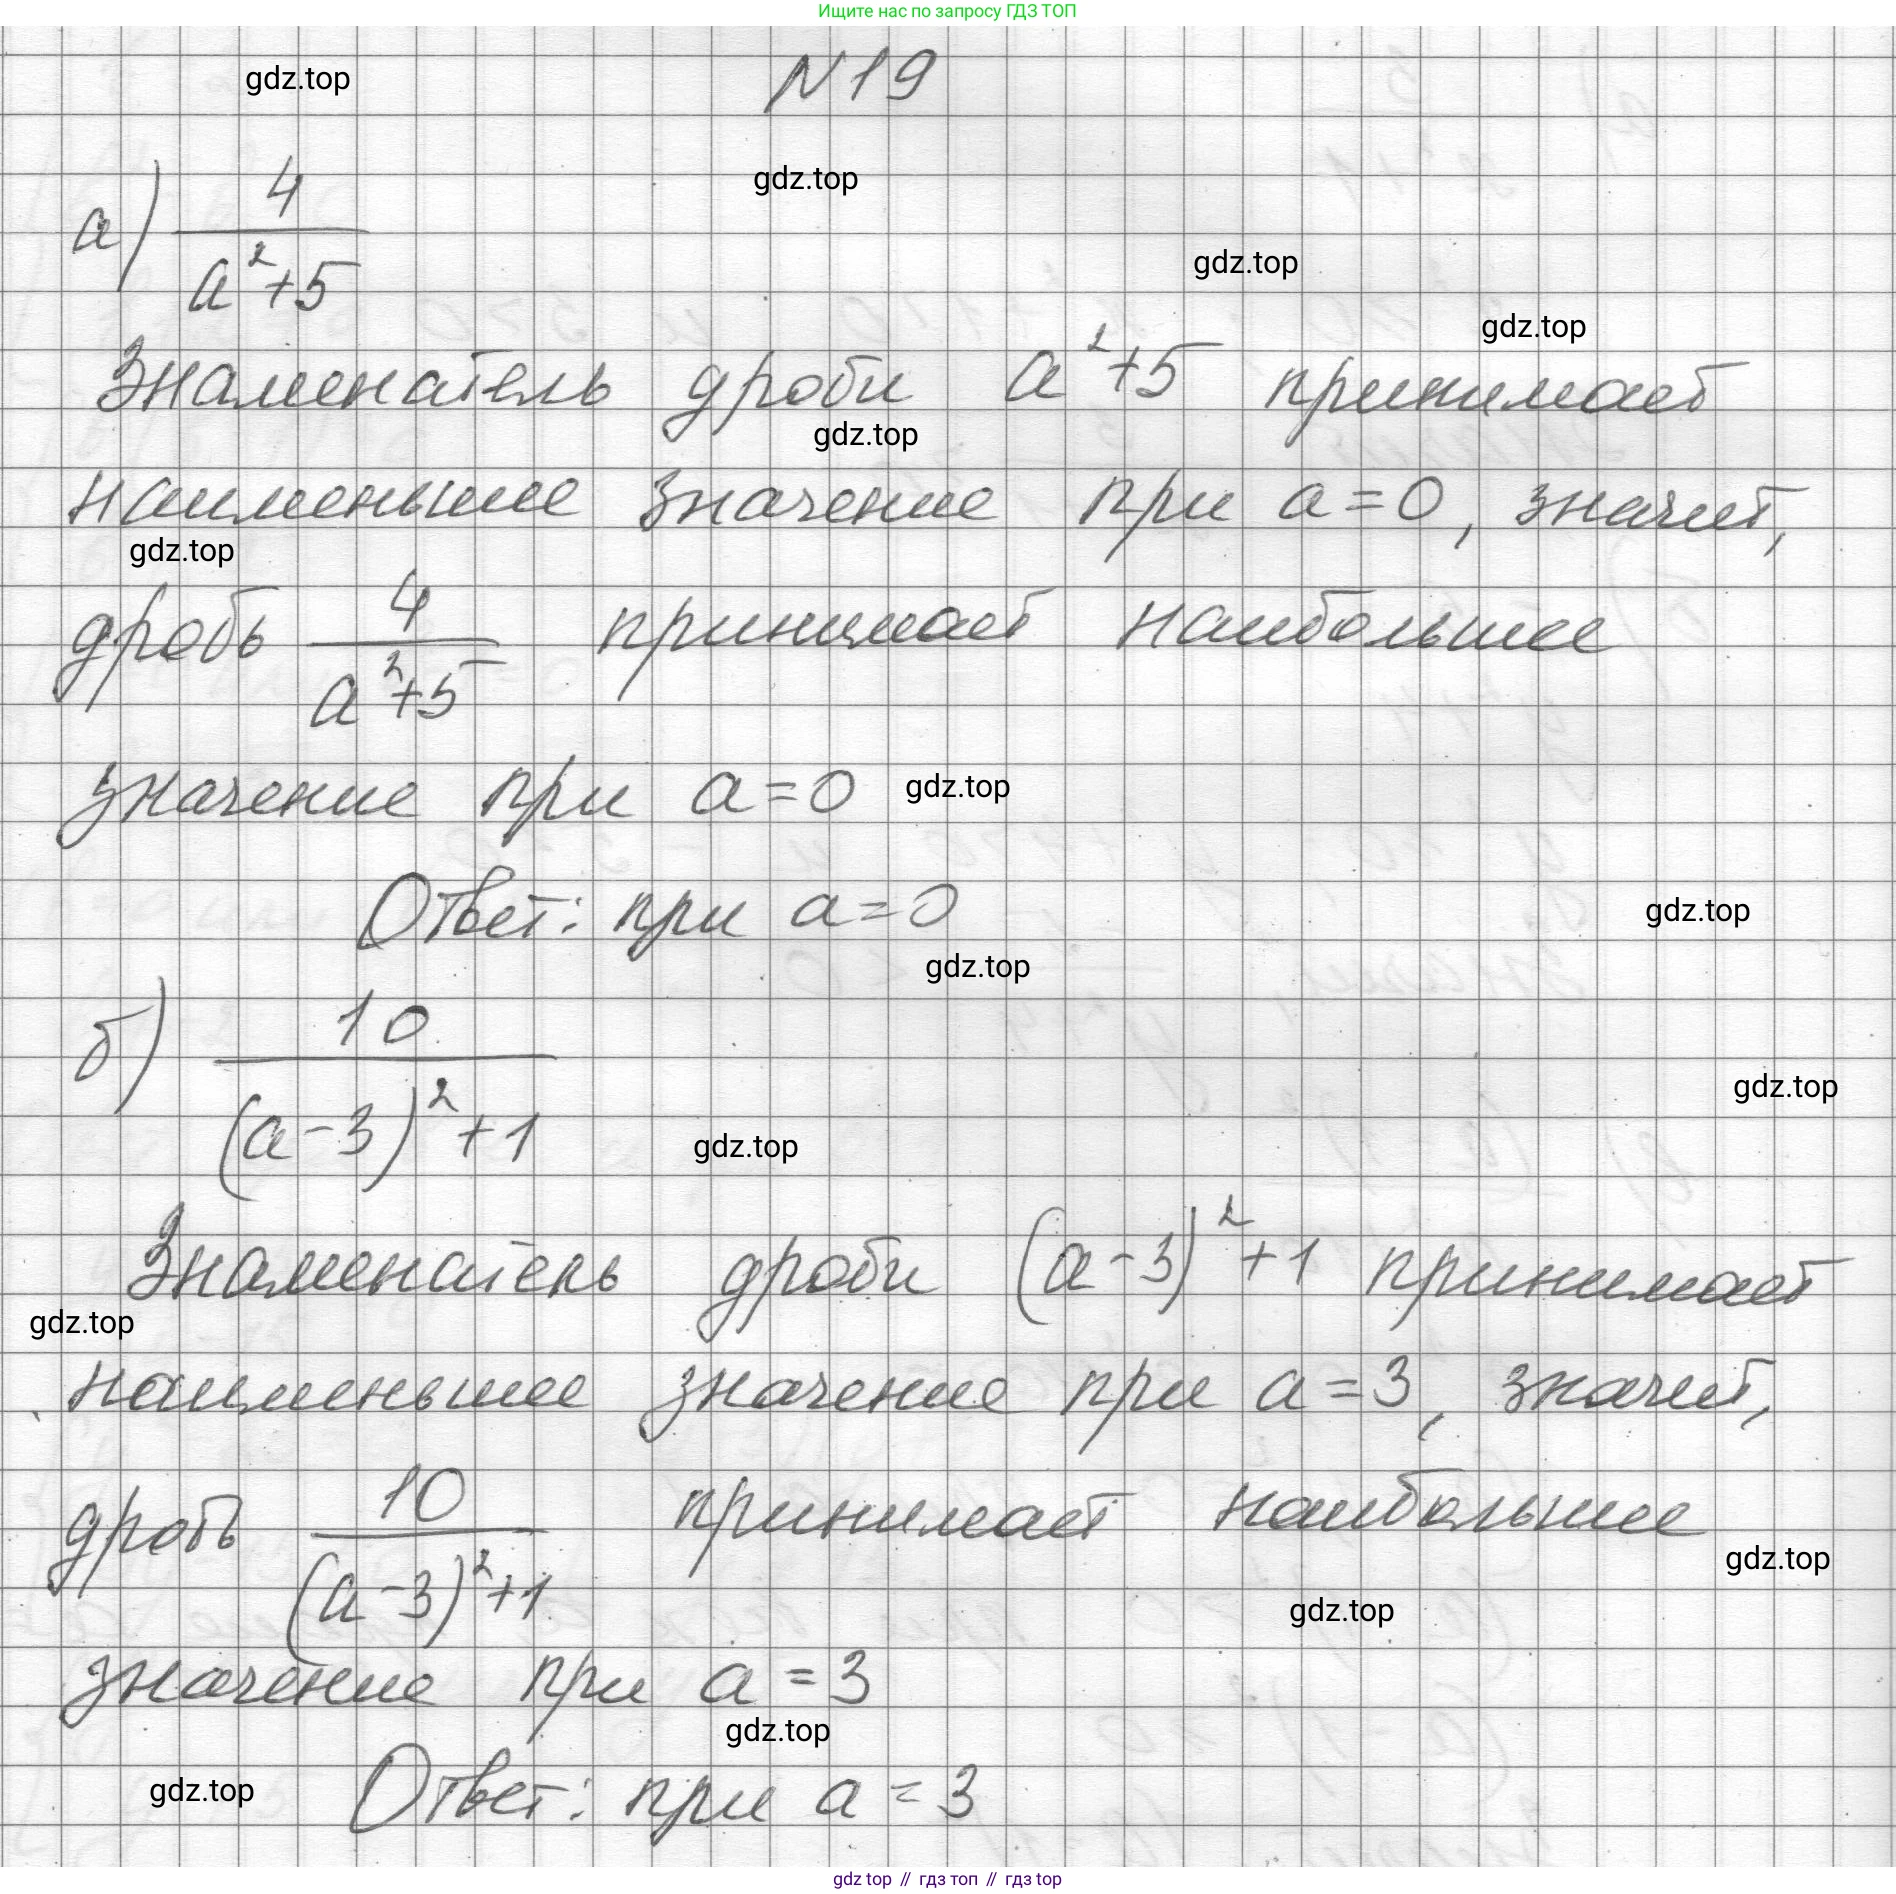 Ищите нас по запросу ГДЗ ТОП
N 19
gdz.top
gdz.top
а) 4/(a²+5)
gdz.top
gdz.top
Знаменатель дроби a²+5 принимает
gdz.top
наименьшее значение при a=0, значит,
gdz.top
дробь 4/(a²+5) принимает наибольшее
значение при a=0
gdz.top
Ответ: при a=0
gdz.top
gdz.top
б) 10/((a-3)²+1)
gdz.top
gdz.top
Знаменатель дроби (a-3)²+1 принимает
gdz.top
наименьшее значение при a=3, значит,
дробь 10/((a-3)²+1) принимает наибольшее
gdz.top
gdz.top
значение при a=3
gdz.top
gdz.top
Ответ: при a=3
gdz top // гдз топ // гдз top